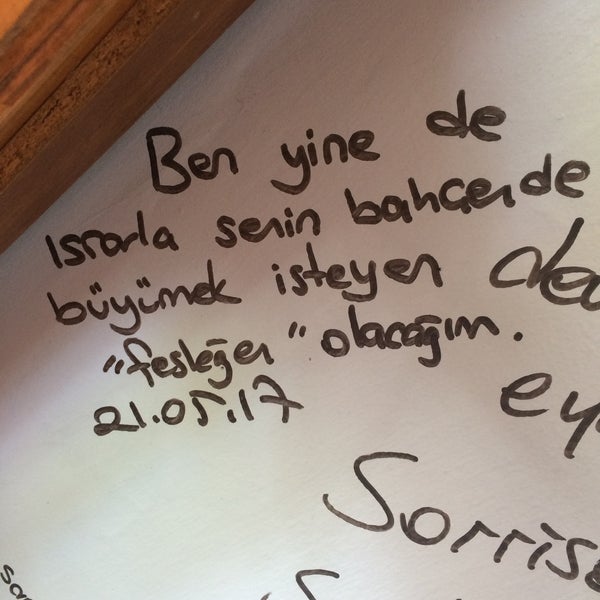 Ben yine de
Israrla senin bahçende
büyümek isteyen
"fesleğen" olacağım.
21.05.17